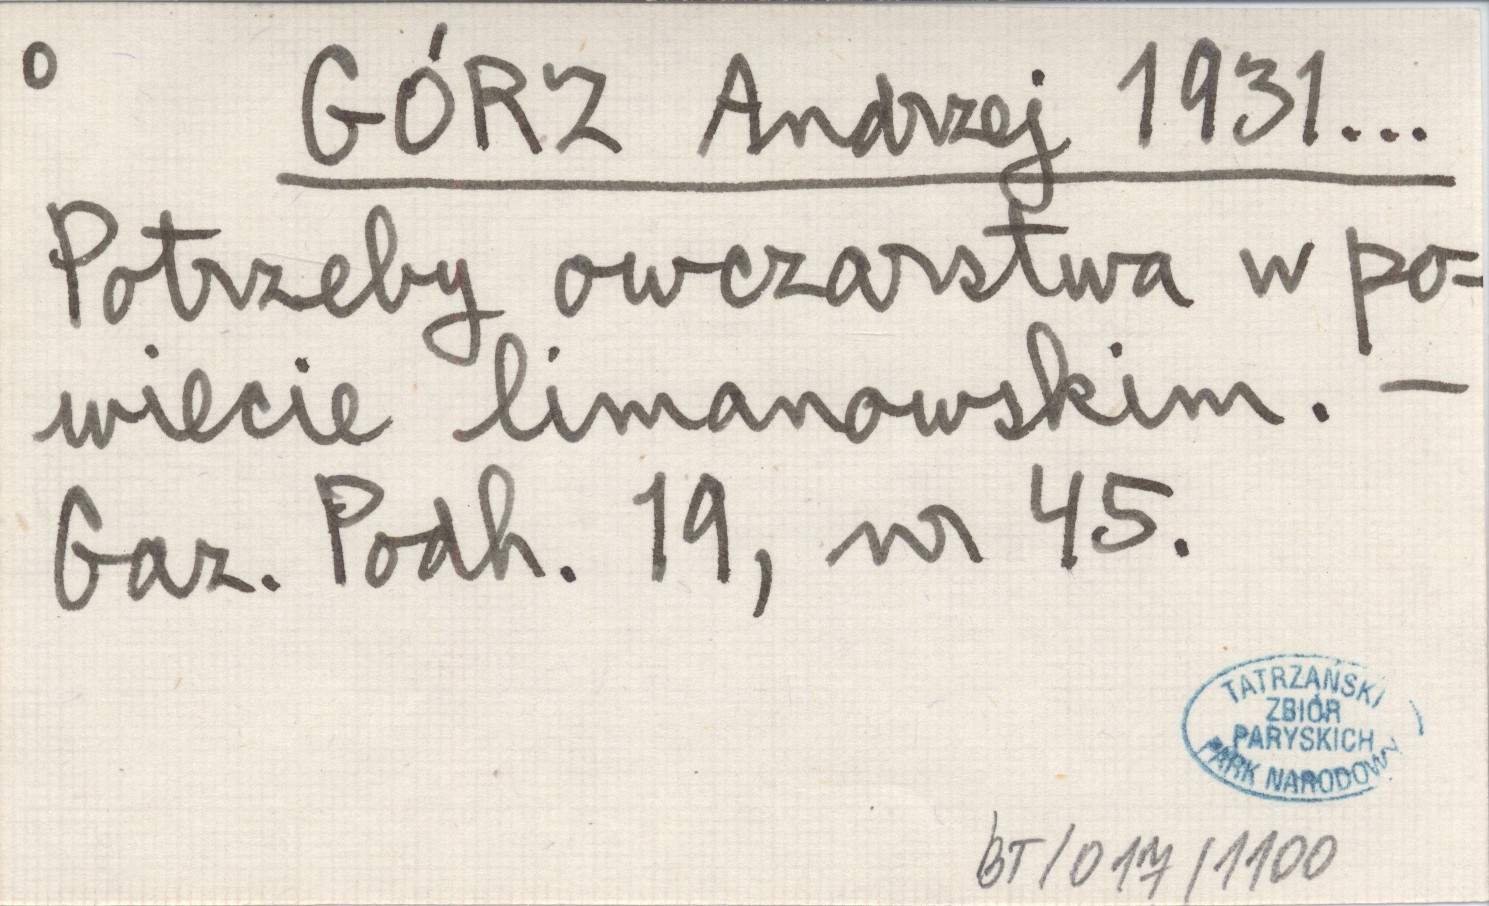 o GÓRZ Andrzej 1931...
Potrzeby owczarstwa w po=
wiecie limanowskim. —
Gaz. Podh. 19, nr 45.
TATRZAŃSKI
ZBIÓR
PARYSKICH
PARK NARODOWY
BT/017/1100